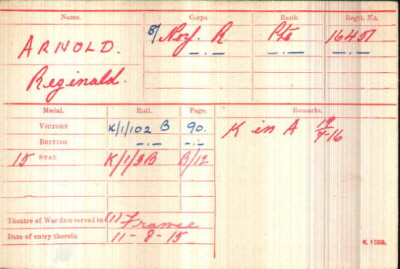 Name. Corps. Rank. Regtl. No.
ARNOLD. 8/ Norf. R Pte 16401
Reginald. —·— —·—
Medal. Roll. Page. Remarks.
VICTORY K/1/102 B 90. K in A 19/7-16
BRITISH —·— —·—
15 STAR K/1/3B B/12
Theatre of War first served in (1) France
Date of entry therein 11-8-15
K. 1380.